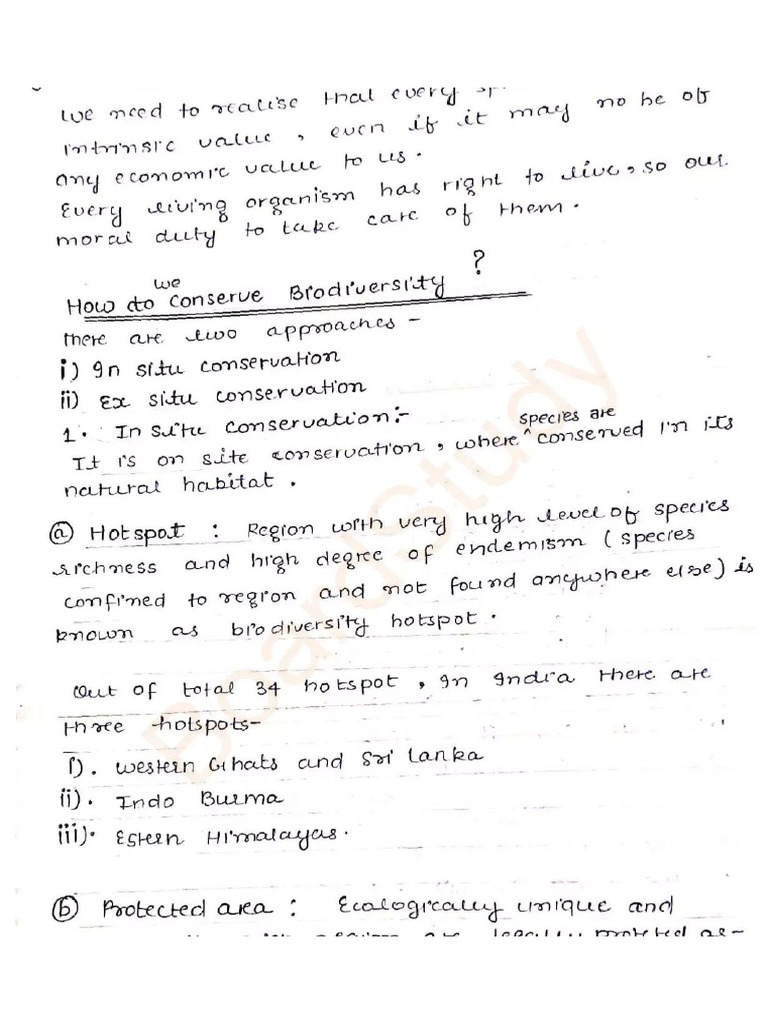 we need to realise that every sp
intrinsic value, even if it may no be of
any economic value to us.
Every living organism has right to live, so our
moral duty to take care of them.
How do we conserve Biodiversity ?
there are two approaches -
i) In situ conservation
ii) Ex situ conservation
1. In situ conservation:-
It is on site conservation, where species are conserved in its
natural habitat.
(a) Hotspot : Region with very high level of species
richness and high degree of endemism (species
confined to region and not found anywhere else) is
known as biodiversity hotspot.
Out of total 34 hotspot, In India there are
three hotspots-
i). Western Ghats and Sri Lanka
ii). Indo Burma
iii). Estern Himalayas.
(b) Protected area : Ecologically unique and
are legally protected as-
BoardStudy